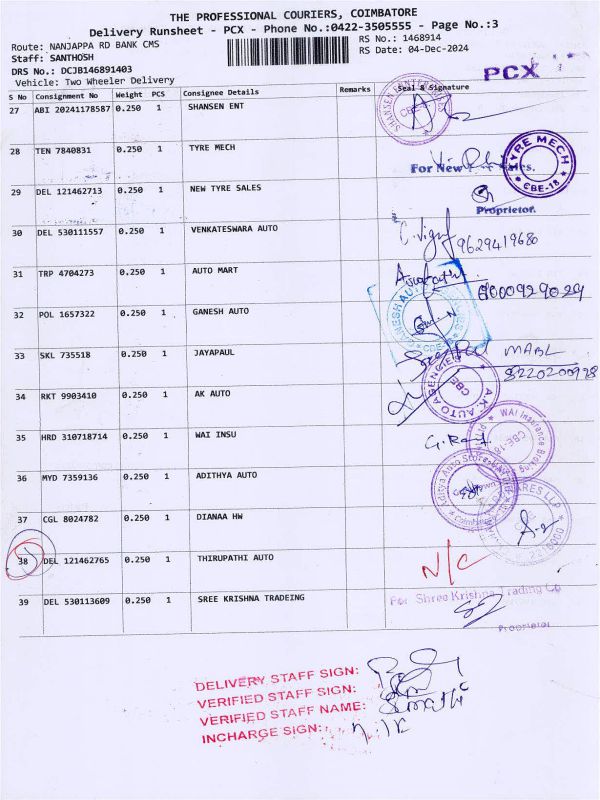 THE PROFESSIONAL COURIERS, COIMBATORE
Delivery Runsheet - PCX - Phone No.:0422-3505555 - Page No.:3
Route: NANJAPPA RD BANK CMS
RS No.: 1468914
Staff: SANTHOSH
RS Date: 04-Dec-2024
DRS No.: DCJB146891403
Vehicle: Two Wheeler Delivery
PCX
S No Consignment No Weight PCS Consignee Details Remarks Seal & Signature
27 ABI 20241178587 0.250 1 SHANSEN ENT
28 TEN 7840831 0.250 1 TYRE MECH
TYRE MECH CBE-18
For New
29 DEL 121462713 0.250 1 NEW TYRE SALES
Proprietor.
30 DEL 530111557 0.250 1 VENKATESWARA AUTO
9629419680
31 TRP 4704273 0.250 1 AUTO MART
32 POL 1657322 0.250 1 GANESH AUTO
33 SKL 735518 0.250 1 JAYAPAUL
34 RKT 9903410 0.250 1 AK AUTO
A.K. AUTO AGENCIES CBE
35 HRD 310718714 0.250 1 WAI INSU
WAI Insurance CBE-18
36 MYD 7359136 0.250 1 ADITHYA AUTO
Aditya Auto Stores Coimbatore
37 CGL 8024782 0.250 1 DIANAA HW
38 DEL 121462765 0.250 1 THIRUPATHI AUTO
N/C
39 DEL 530113609 0.250 1 SREE KRISHNA TRADEING
For Shree Krishna Trading Co
Proprietor
DELIVERY STAFF SIGN:
VERIFIED STAFF SIGN:
VERIFIED STAFF NAME:
INCHARGE SIGN: